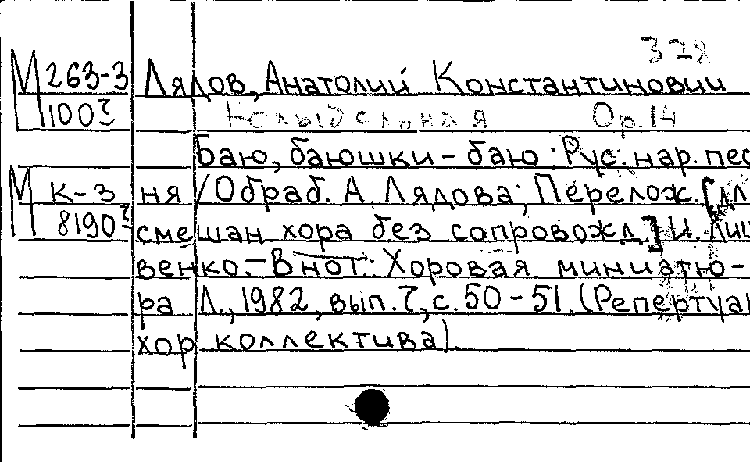 328
М 263-3 Лядов, Анатолий Константинович
100³ Колыбельная Ор.14
Баю, баюшки-баю: Рус. нар. пес
М К-3 ня /Обраб. А Лядова; Перелож. [дл
8190³ смешан хора без сопровожд.] И. Лиц
венко.-В нот.: Хоровая миниатю-
ра Л., 1982, вып.7, с.50-51. (Репертуар
хор коллектива).